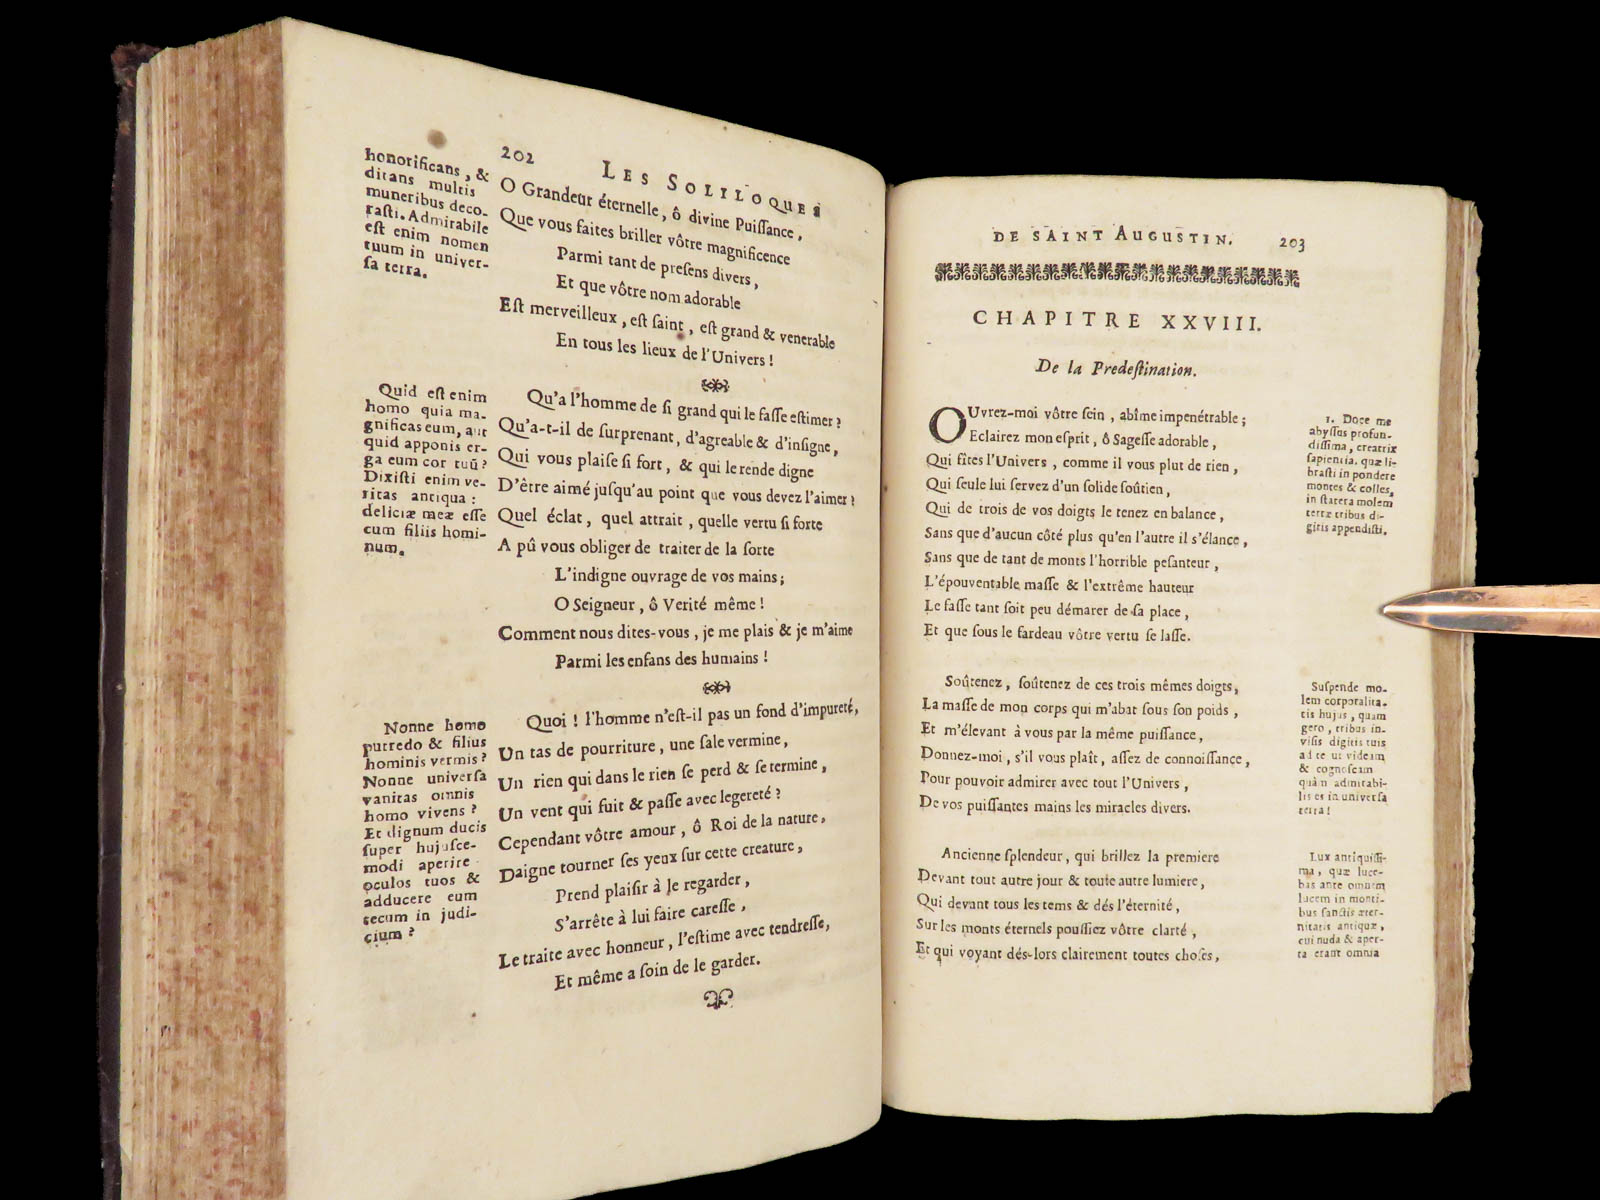 202
LES SOLILOQUES
honorificans, &
ditans multis
muneribus deco-
raſti. Admirabile
eſt enim nomen
tuum in univer-
ſa terra.
O Grandeur éternelle, ô divine Puiſſance,
Que vous faites briller vôtre magnificence
Parmi tant de preſens divers,
Et que vôtre nom adorable
Eſt merveilleux, eſt ſaint, eſt grand & venerable
En tous les lieux de l'Univers!
Quid eſt enim
homo quia ma-
gnificas eum, aut
quid apponis er-
ga eum cor tuũ?
Dixiſti enim ve-
ritas antiqua:
deliciæ meæ eſſe
cum filiis homi-
num.
Qu'a l'homme de ſi grand qui le faſſe eſtimer?
Qu'a-t-il de ſurprenant, d'agreable & d'inſigne,
Qui vous plaiſe ſi fort, & qui le rende digne
D'être aimé juſqu'au point que vous devez l'aimer?
Quel éclat, quel attrait, quelle vertu ſi forte
A pû vous obliger de traiter de la ſorte
L'indigne ouvrage de vos mains;
O Seigneur, ô Verité même!
Comment nous dites-vous, je me plais & je m'aime
Parmi les enfans des humains!
Nonne homo
putredo & filius
hominis vermis?
Nonne univerſa
vanitas omnis
homo vivens?
Et dignum ducis
ſuper hujuſce-
modi aperire
oculos tuos &
adducere eum
tecum in judi-
cium?
Quoi! l'homme n'eſt-il pas un fond d'impureté,
Un tas de pourriture, une ſale vermine,
Un rien qui dans le rien ſe perd & ſe termine,
Un vent qui fuit & paſſe avec legereté?
Cependant vôtre amour, ô Roi de la nature,
Daigne tourner ſes yeux ſur cette creature,
Prend plaiſir à le regarder,
S'arrête à lui faire careſſe,
Le traite avec honneur, l'eſtime avec tendreſſe,
Et même a ſoin de le garder.
DE SAINT AUGUSTIN. 203
CHAPITRE XXVIII.
De la Predeſtination.
OUvrez-moi vôtre ſein, abîme impenétrable;
Eclairez mon eſprit, ô Sageſſe adorable,
Qui fîtes l'Univers, comme il vous plut de rien,
Qui ſeule lui ſervez d'un ſolide ſoûtien,
Qui de trois de vos doigts le tenez en balance,
Sans que d'aucun côté plus qu'en l'autre il s'élance,
Sans que de tant de monts l'horrible peſanteur,
L'épouventable maſſe & l'extrême hauteur
Le faſſe tant ſoit peu démarer de ſa place,
Et que ſous le fardeau vôtre vertu ſe laſſe.
1. Doce me
abyſſus profun-
diſſima, creatrix
ſapientia, quæ li-
braſti in pondere
montes & colles,
in ſtatera molem
terræ tribus di-
gitis appendiſti.
Soûtenez, ſoûtenez de ces trois mêmes doigts,
La maſſe de mon corps qui m'abat ſous ſon poids,
Et m'élevant à vous par la même puiſſance,
Donnez-moi, s'il vous plaît, aſſez de connoiſſance,
Pour pouvoir admirer avec tout l'Univers,
De vos puiſſantes mains les miracles divers.
Suſpende mo-
lem corporalita-
tis hujus, quam
gero, tribus in-
viſis digitis tuis
ad te ut videam
& cognoſcam
quàm admirabi-
lis es in univerſa
terra!
Ancienne ſplendeur, qui brillez la premiere
Devant tout autre jour & toute autre lumiere,
Qui devant tous les tems & dés l'éternité,
Sur les monts éternels pouſſiez vôtre clarté,
Et qui voyant dés-lors clairement toutes choſes,
Lux antiquiſſi-
ma, quæ luce-
bas ante omnem
lucem in monti-
bus ſanctis æter-
nitatis antiquæ,
cui nuda & aper-
ta erant omnia